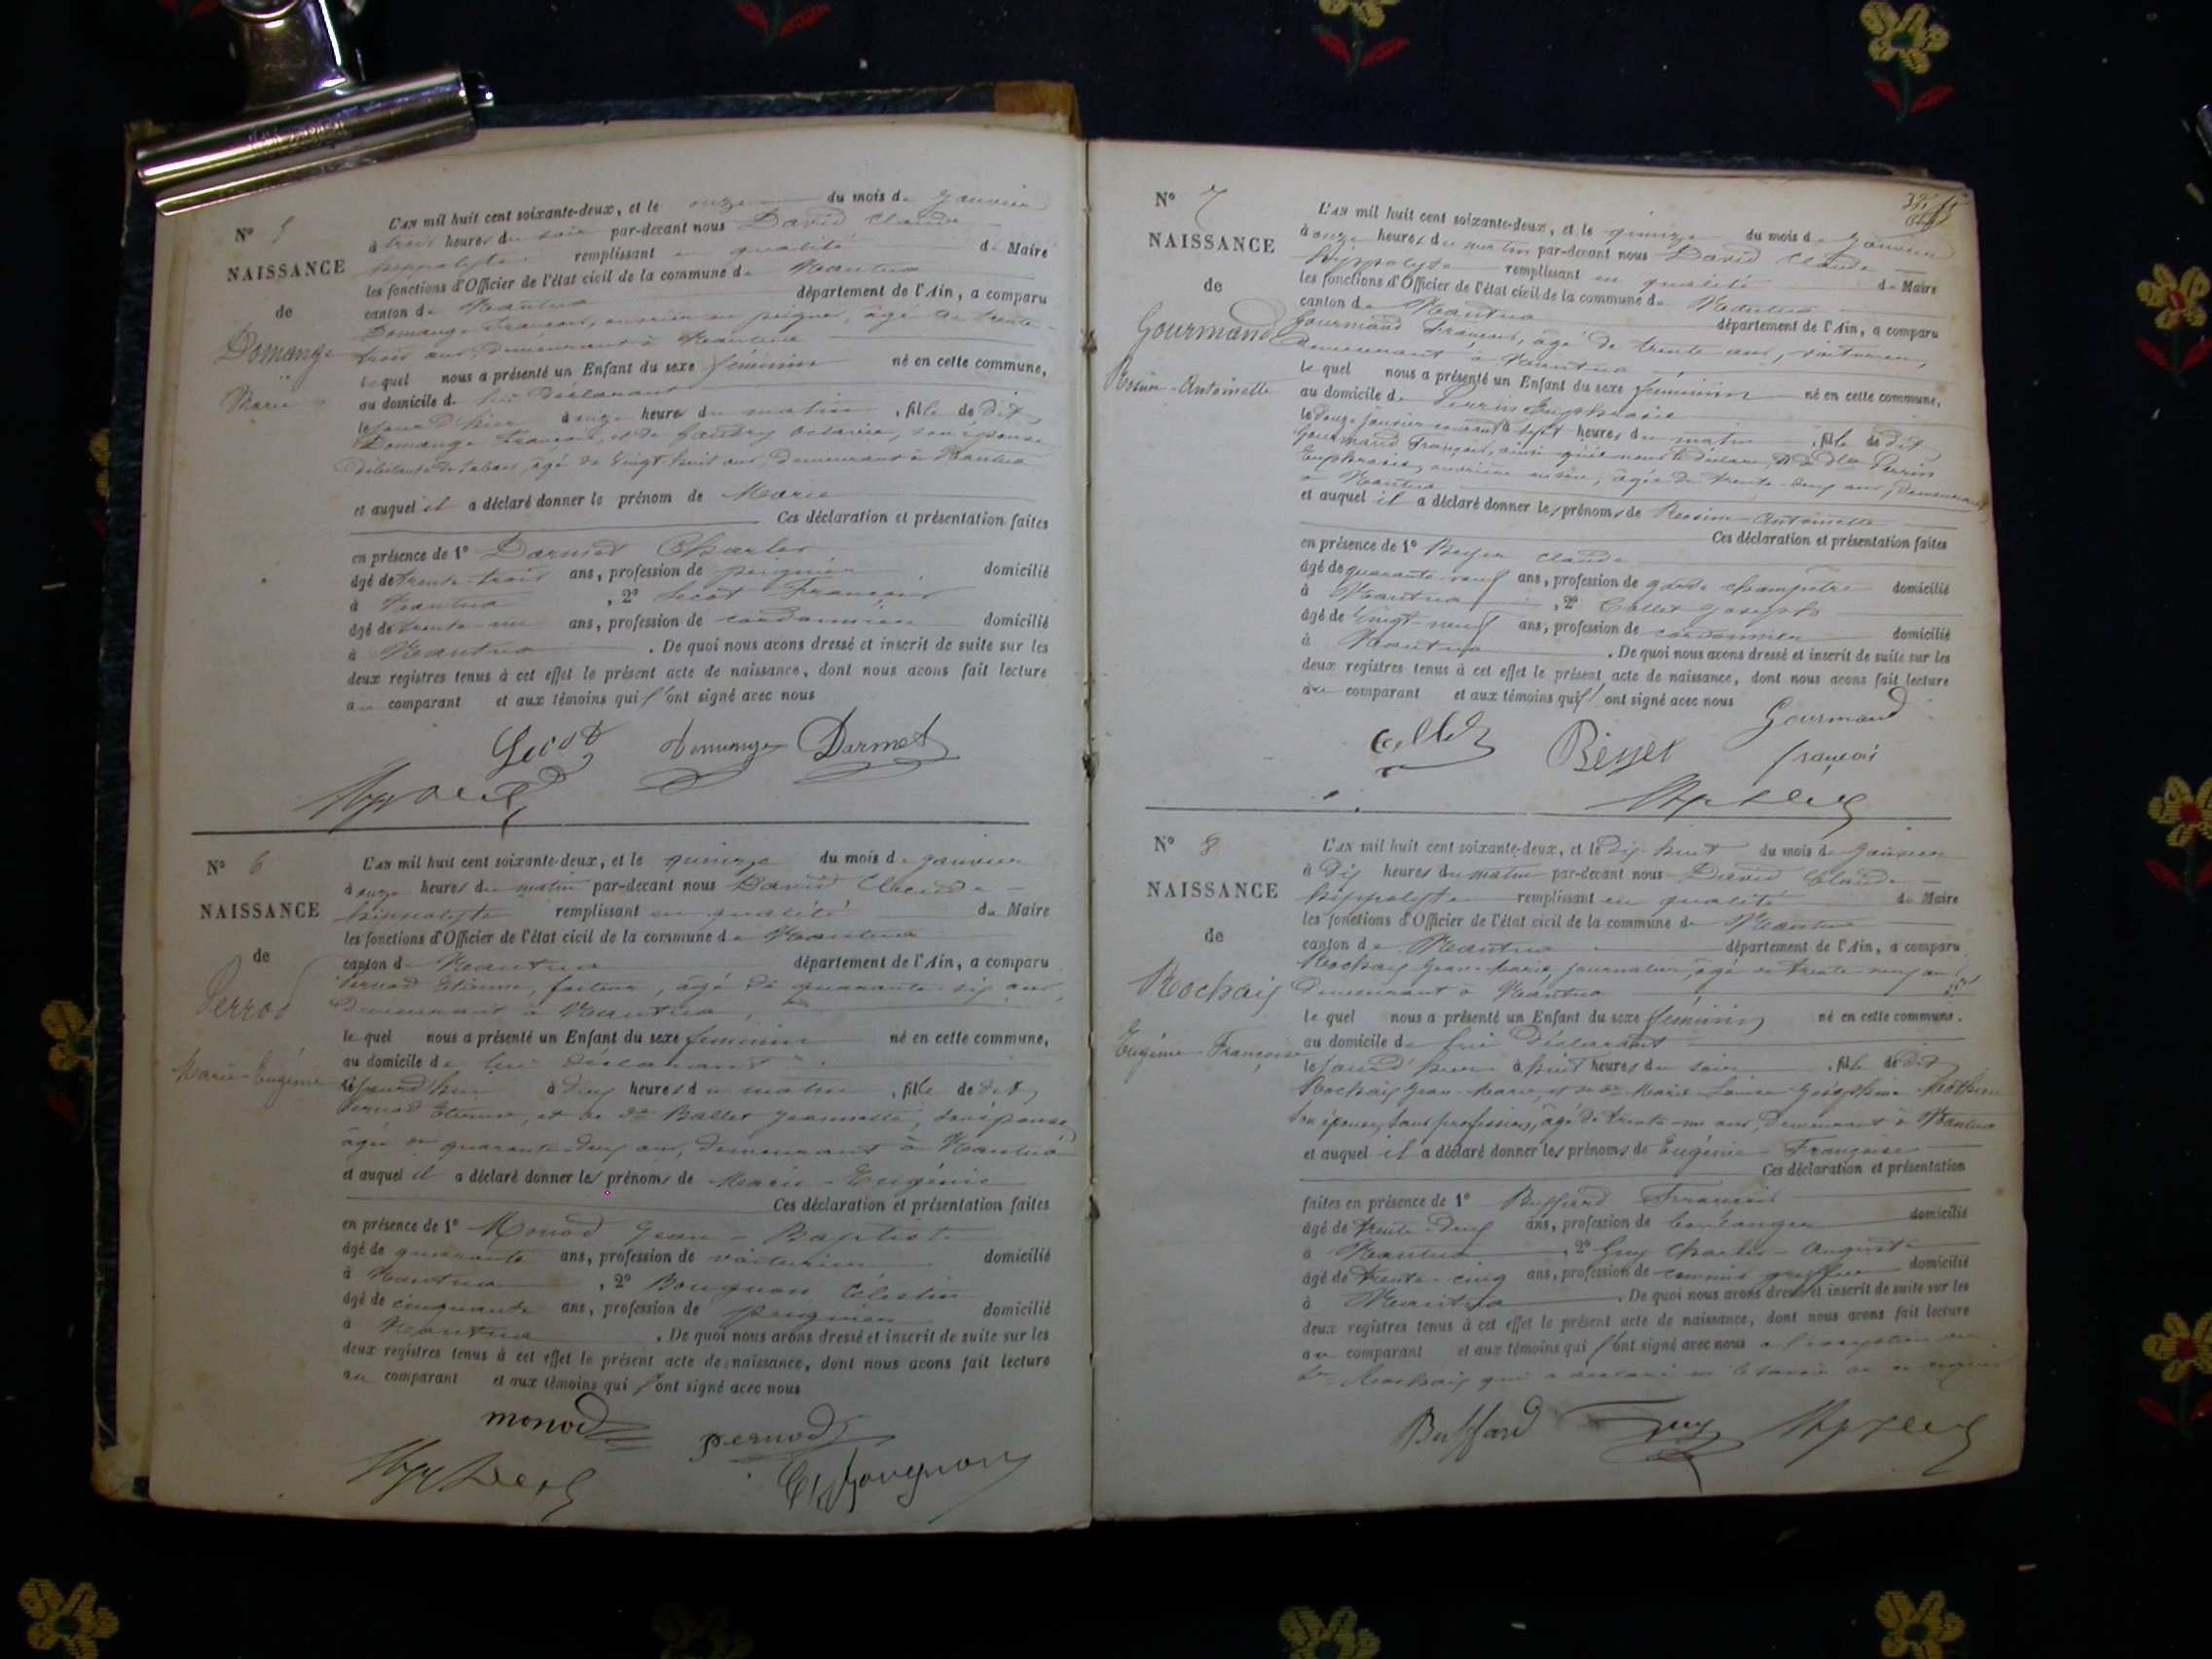 N° 5
NAISSANCE
de
Domange
Marie
L'AN mil huit cent soixante-deux, et le onze du mois de Janvier
à trois heures du soir par-devant nous David Claude
hippolyte remplissant en qualité de Maire
les fonctions d'Officier de l'état civil de la commune de Nantua
canton de Nantua département de l'Ain, a comparu
Domange François, ouvrier en peignes, âgé de trente-
trois ans, demeurant à Nantua
lequel nous a présenté un Enfant du sexe féminin né en cette commune,
au domicile de lui déclarant
le jour d'hier à onze heures du matin, fille de dit
Domange François, et de Gaudry Octavie, son épouse
débitante de tabacs, âgé de vingt-huit ans, demeurant à Nantua
et auquel il a déclaré donner le prénom de Marie
Ces déclaration et présentation faites
en présence de 1° Darmet Charles
âgé de trente-trois ans, profession de peignier domicilié
à Nantua, 2° Secot François
âgé de trente-un ans, profession de cordonnier domicilié
à Nantua. De quoi nous avons dressé et inscrit de suite sur les
deux registres tenus à cet effet le présent acte de naissance, dont nous avons fait lecture
au comparant et aux témoins qui l'ont signé avec nous
Domange Darmet
N° 6
NAISSANCE
de
Pernod
Marie-Eugénie
L'AN mil huit cent soixante-deux, et le quinze du mois de Janvier
à onze heures du matin par-devant nous David Claude
hippolyte remplissant en qualité de Maire
les fonctions d'Officier de l'état civil de la commune de Nantua
canton de Nantua département de l'Ain, a comparu
Pernod Etienne, facteur, âgé de quarante-six ans,
demeurant à Nantua,
lequel nous a présenté un Enfant du sexe féminin né en cette commune,
au domicile de lui déclarant
le jourd'hui à deux heures du matin, fille de dit
Pernod Etienne, et de de Ballet Jeannette, son épouse
âgée de quarante-deux ans, demeurant à Nantua
et auquel il a déclaré donner les prénoms de Marie-Eugénie
Ces déclaration et présentation faites
en présence de 1° Monod Jean-Baptiste
âgé de quarante ans, profession de voiturier domicilié
à Nantua, 2° Bougnon Célestin
âgé de cinquante ans, profession de peignier domicilié
à Nantua. De quoi nous avons dressé et inscrit de suite sur les
deux registres tenus à cet effet le présent acte de naissance, dont nous avons fait lecture
au comparant et aux témoins qui l'ont signé avec nous
monod pernod
N° 7
NAISSANCE
de
Gourmand
Rosine-Antoinette
L'AN mil huit cent soixante-deux, et le quinze du mois de Janvier
à onze heures du matin par-devant nous David Claude
hippolyte remplissant en qualité de Maire
les fonctions d'Officier de l'état civil de la commune de Nantua
canton de Nantua département de l'Ain, a comparu
Gourmand François, âgé de trente ans, voiturier,
demeurant à Nantua
lequel nous a présenté un Enfant du sexe féminin né en cette commune,
au domicile de Perrin Euphrasie
le douze janvier courant à sept heures du matin, fille de dit
Gourmand François, ainsi qu'il nous le déclare, et de dlle Perrin
Euphrasie, ouvrière en soie, âgée de trente-deux ans, demeurant
à Nantua
et auquel il a déclaré donner les prénoms de Rosine-Antoinette
Ces déclaration et présentation faites
en présence de 1° Beysset Claude
âgé de quarante-neuf ans, profession de garde champêtre domicilié
à Nantua, 2° Collet Joseph
âgé de vingt-neuf ans, profession de cordonnier domicilié
à Nantua. De quoi nous avons dressé et inscrit de suite sur les
deux registres tenus à cet effet le présent acte de naissance, dont nous avons fait lecture
au comparant et aux témoins qui l'ont signé avec nous
Gourmand
françois
N° 8
NAISSANCE
de
Rochaix
Eugénie-Françoise
L'AN mil huit cent soixante-deux, et le dix-huit du mois de Janvier
à dix heures du matin par-devant nous David Claude
hippolyte remplissant en qualité de Maire
les fonctions d'Officier de l'état civil de la commune de Nantua
canton de Nantua département de l'Ain, a comparu
Rochaix Jean-Marie, journalier, âgé de trente-neuf ans
demeurant à Nantua
lequel nous a présenté un Enfant du sexe féminin né en cette commune.
au domicile de lui déclarant
le jour d'hier à huit heures du soir, fille de dit
Rochaix Jean-Marie, et de de Marie-Louise-Joséphine Mathieu
son épouse, sans profession, âgé de trente-un ans, demeurant à Nantua
et auquel il a déclaré donner les prénoms de Eugénie-Françoise
Ces déclaration et présentation
faites en présence de 1° Buffard François
âgé de trente-deux ans, profession de boulanger domicilié
à Nantua, 2° Guy Charles-Auguste
âgé de trente-cinq ans, profession de commis greffier domicilié
à Nantua. De quoi nous avons dressé et inscrit de suite sur les
deux registres tenus à cet effet le présent acte de naissance, dont nous avons fait lecture
au comparant et aux témoins qui l'ont signé avec nous à l'exception du
Sr Rochaix qui a déclaré ne le savoir de ce requis
Buffard Guy